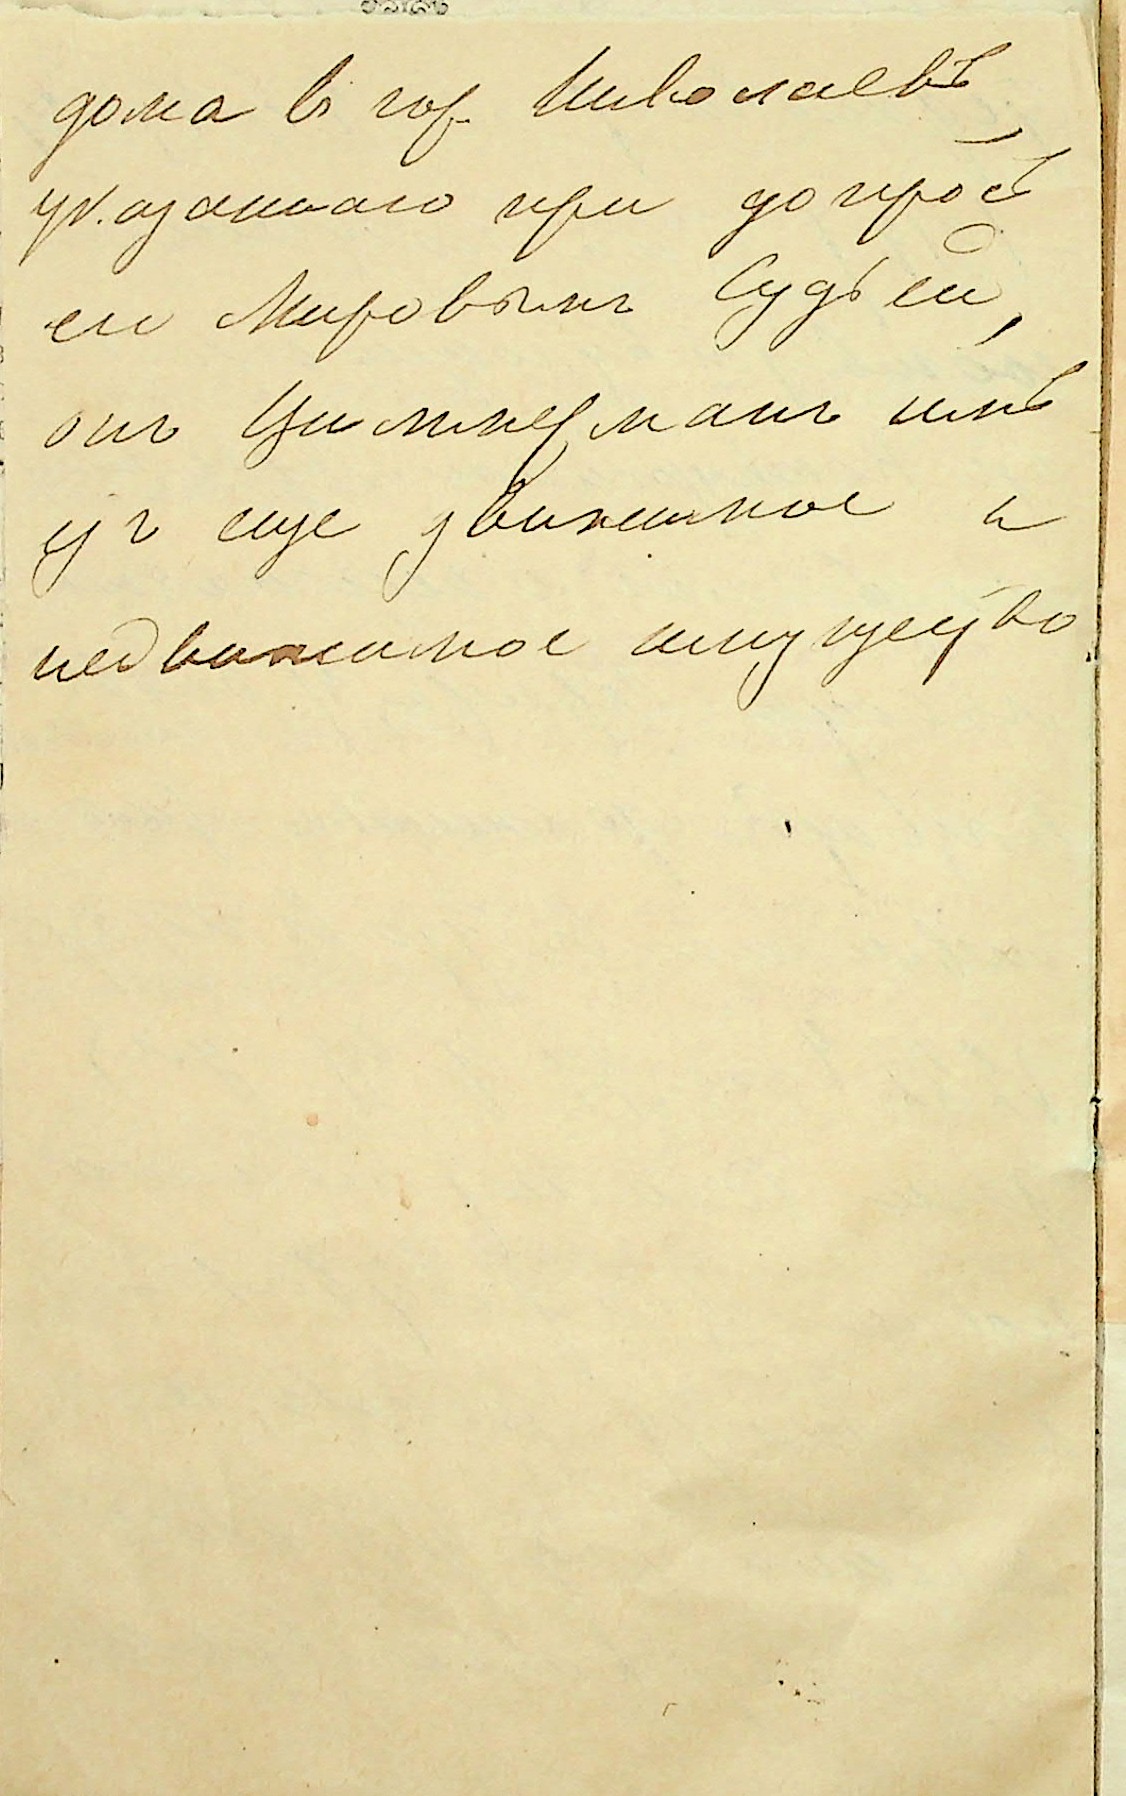 дома в гор. Николаевѣ
указаннаго при допросѣ
его Мировымъ Судьей,
онъ Циммерманъ имѣ
етъ еще движимое и
недвижимое имущество